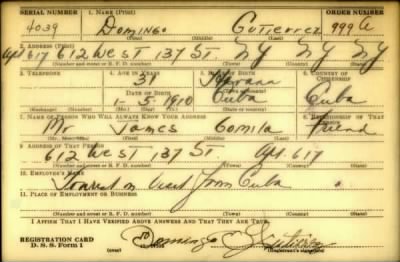 SERIAL NUMBER 1. NAME (Print) ORDER NUMBER
4039 DOMINGO GUTIERREZ 999 A
2. ADDRESS (Print)
Apt 617 612 West 137 St. NY NY NY
(Number and street or R. F. D. number) (Town) (County) (State)
3. TELEPHONE 4. AGE IN YEARS 5. PLACE OF BIRTH 6. COUNTRY OF CITIZENSHIP
31 Havana
DATE OF BIRTH (Town or county)
1-5-1910 Cuba Cuba
(Mo.) (Day) (Yr.) (State or country)
7. NAME OF PERSON WHO WILL ALWAYS KNOW YOUR ADDRESS 8. RELATIONSHIP OF THAT PERSON
Mr James Comila friend
9. ADDRESS OF THAT PERSON
612 West 137 St. Apt 617
(Number and street or R. F. D. number) (Town) (County) (State)
10. EMPLOYER'S NAME
Tourist on visit from Cuba
11. PLACE OF EMPLOYMENT OR BUSINESS
(Number and street or R. F. D. number) (Town) (County) (State)
I AFFIRM THAT I HAVE VERIFIED ABOVE ANSWERS AND THAT THEY ARE TRUE.
REGISTRATION CARD
D. S. S. Form 1 Domingo Gutierrez
(Registrant's signature)